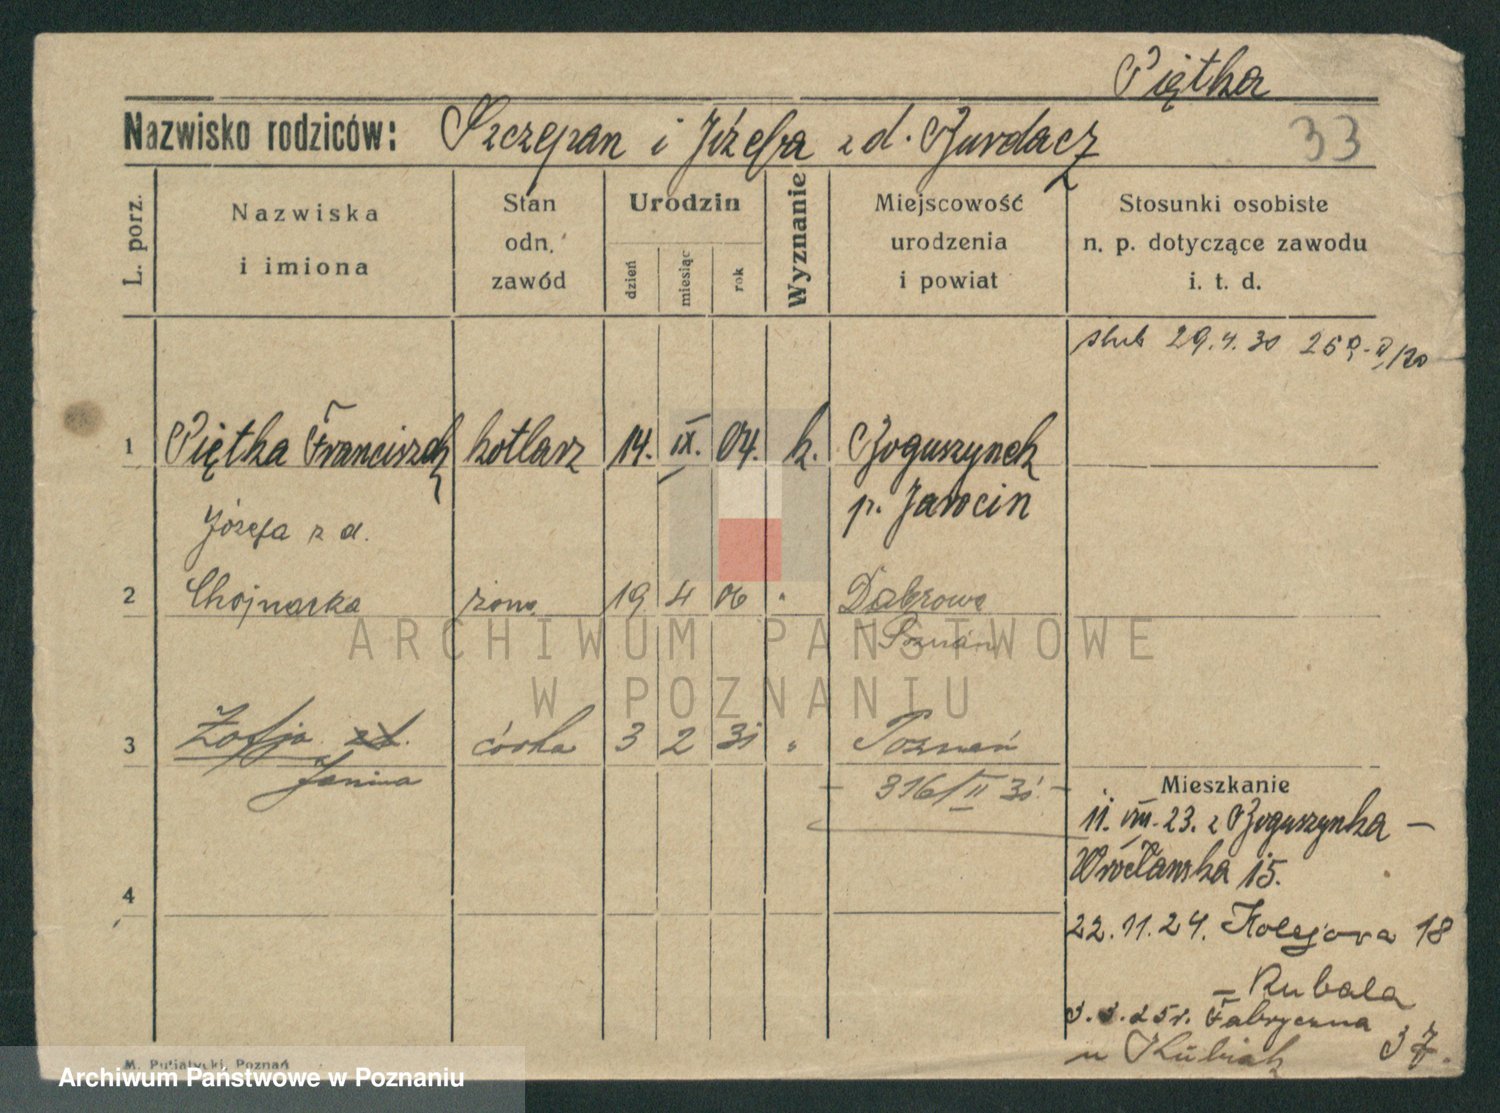 Piętka
Nazwisko rodziców: Szczepan i Józefa z d. Burdacz
33
L. porz.
Nazwiska
i imiona
Stan
odn.
zawód
Urodzin
dzień
miesiąc
rok
Wyznanie
Miejscowość
urodzenia
i powiat
Stosunki osobiste
n. p. dotyczące zawodu
i. t. d.
ślub 29.4.30
1 Piętka Franciszek kotlarz 14. IX. 04. k. Boguszynek
p. Jarocin
Józefa z d.
2 Chojnacka żona 19 4 06 " Dąbrowa
Poznań
3 Zofja zd. córka 3 2 31 " Poznań
Janina
316/II 31
Mieszkanie
11. VIII. 23. z Boguszynka —
Wrocławska 15.
4
22.11.24. Kolejowa 18
– Kubala
3.3.25r. Fabryczna
u Kubiak 37.
M. Putiatycki, Poznań
ARCHIWUM PAŃSTWOWE
W POZNANIU
Archiwum Państwowe w Poznaniu